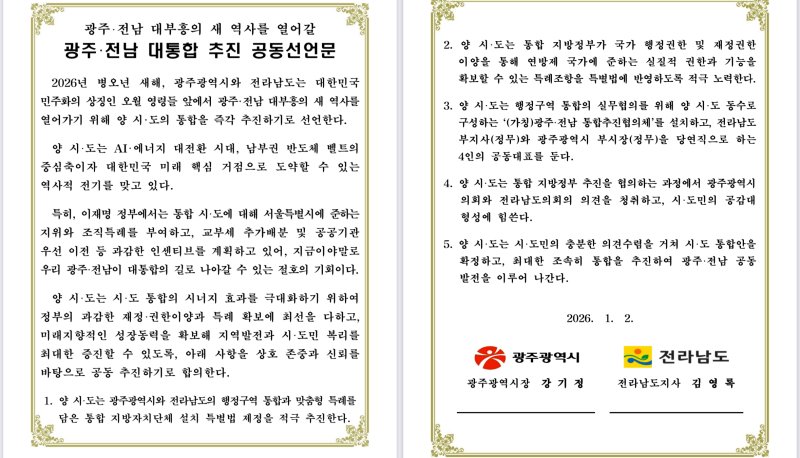 광주·전남 대부흥의 새 역사를 열어갈
광주·전남 대통합 추진 공동선언문
2026년 병오년 새해, 광주광역시와 전라남도는 대한민국
민주화의 상징인 오월 영령들 앞에서 광주·전남 대부흥의 새 역사를
열어가기 위해 양 시·도의 통합을 즉각 추진하기로 선언한다.
양 시·도는 AI·에너지 대전환 시대, 남부권 반도체 벨트의
중심축이자 대한민국 미래 핵심 거점으로 도약할 수 있는
역사적 전기를 맞고 있다.
특히, 이재명 정부에서는 통합 시·도에 대해 서울특별시에 준하는
지위와 조직특례를 부여하고, 교부세 추가배분 및 공공기관
우선 이전 등 과감한 인센티브를 계획하고 있어, 지금이야말로
우리 광주·전남이 대통합의 길로 나아갈 수 있는 절호의 기회이다.
양 시·도는 시·도 통합의 시너지 효과를 극대화하기 위하여
정부의 과감한 재정·권한이양과 특례 확보에 최선을 다하고,
미래지향적인 성장동력을 확보해 지역발전과 시·도민 복리를
최대한 증진할 수 있도록, 아래 사항을 상호 존중과 신뢰를
바탕으로 공동 추진하기로 합의한다.
1. 양 시·도는 광주광역시와 전라남도의 행정구역 통합과 맞춤형 특례를
담은 통합 지방자치단체 설치 특별법 제정을 적극 추진한다.
2. 양 시·도는 통합 지방정부가 국가 행정권한 및 재정권한
이양을 통해 연방제 국가에 준하는 실질적 권한과 기능을
확보할 수 있는 특례조항을 특별법에 반영하도록 적극 노력한다.
3. 양 시·도는 행정구역 통합의 실무협의를 위해 양 시·도 동수로
구성하는 ‘(가칭)광주·전남 통합추진협의체’를 설치하고, 전라남도
부지사(정무)와 광주광역시 부시장(정무)을 당연직으로 하는
4인의 공동대표를 둔다.
4. 양 시·도는 통합 지방정부 추진을 협의하는 과정에서 광주광역시
의회와 전라남도의회의 의견을 청취하고, 시·도민의 공감대
형성에 힘쓴다.
5. 양 시·도는 시·도민의 충분한 의견수렴을 거쳐 시·도 통합안을
확정하고, 최대한 조속히 통합을 추진하여 광주·전남 공동
발전을 이루어 나간다.
2026. 1. 2.
광주광역시
전라남도
광주광역시장 강 기 정
전라남도지사 김 영 록